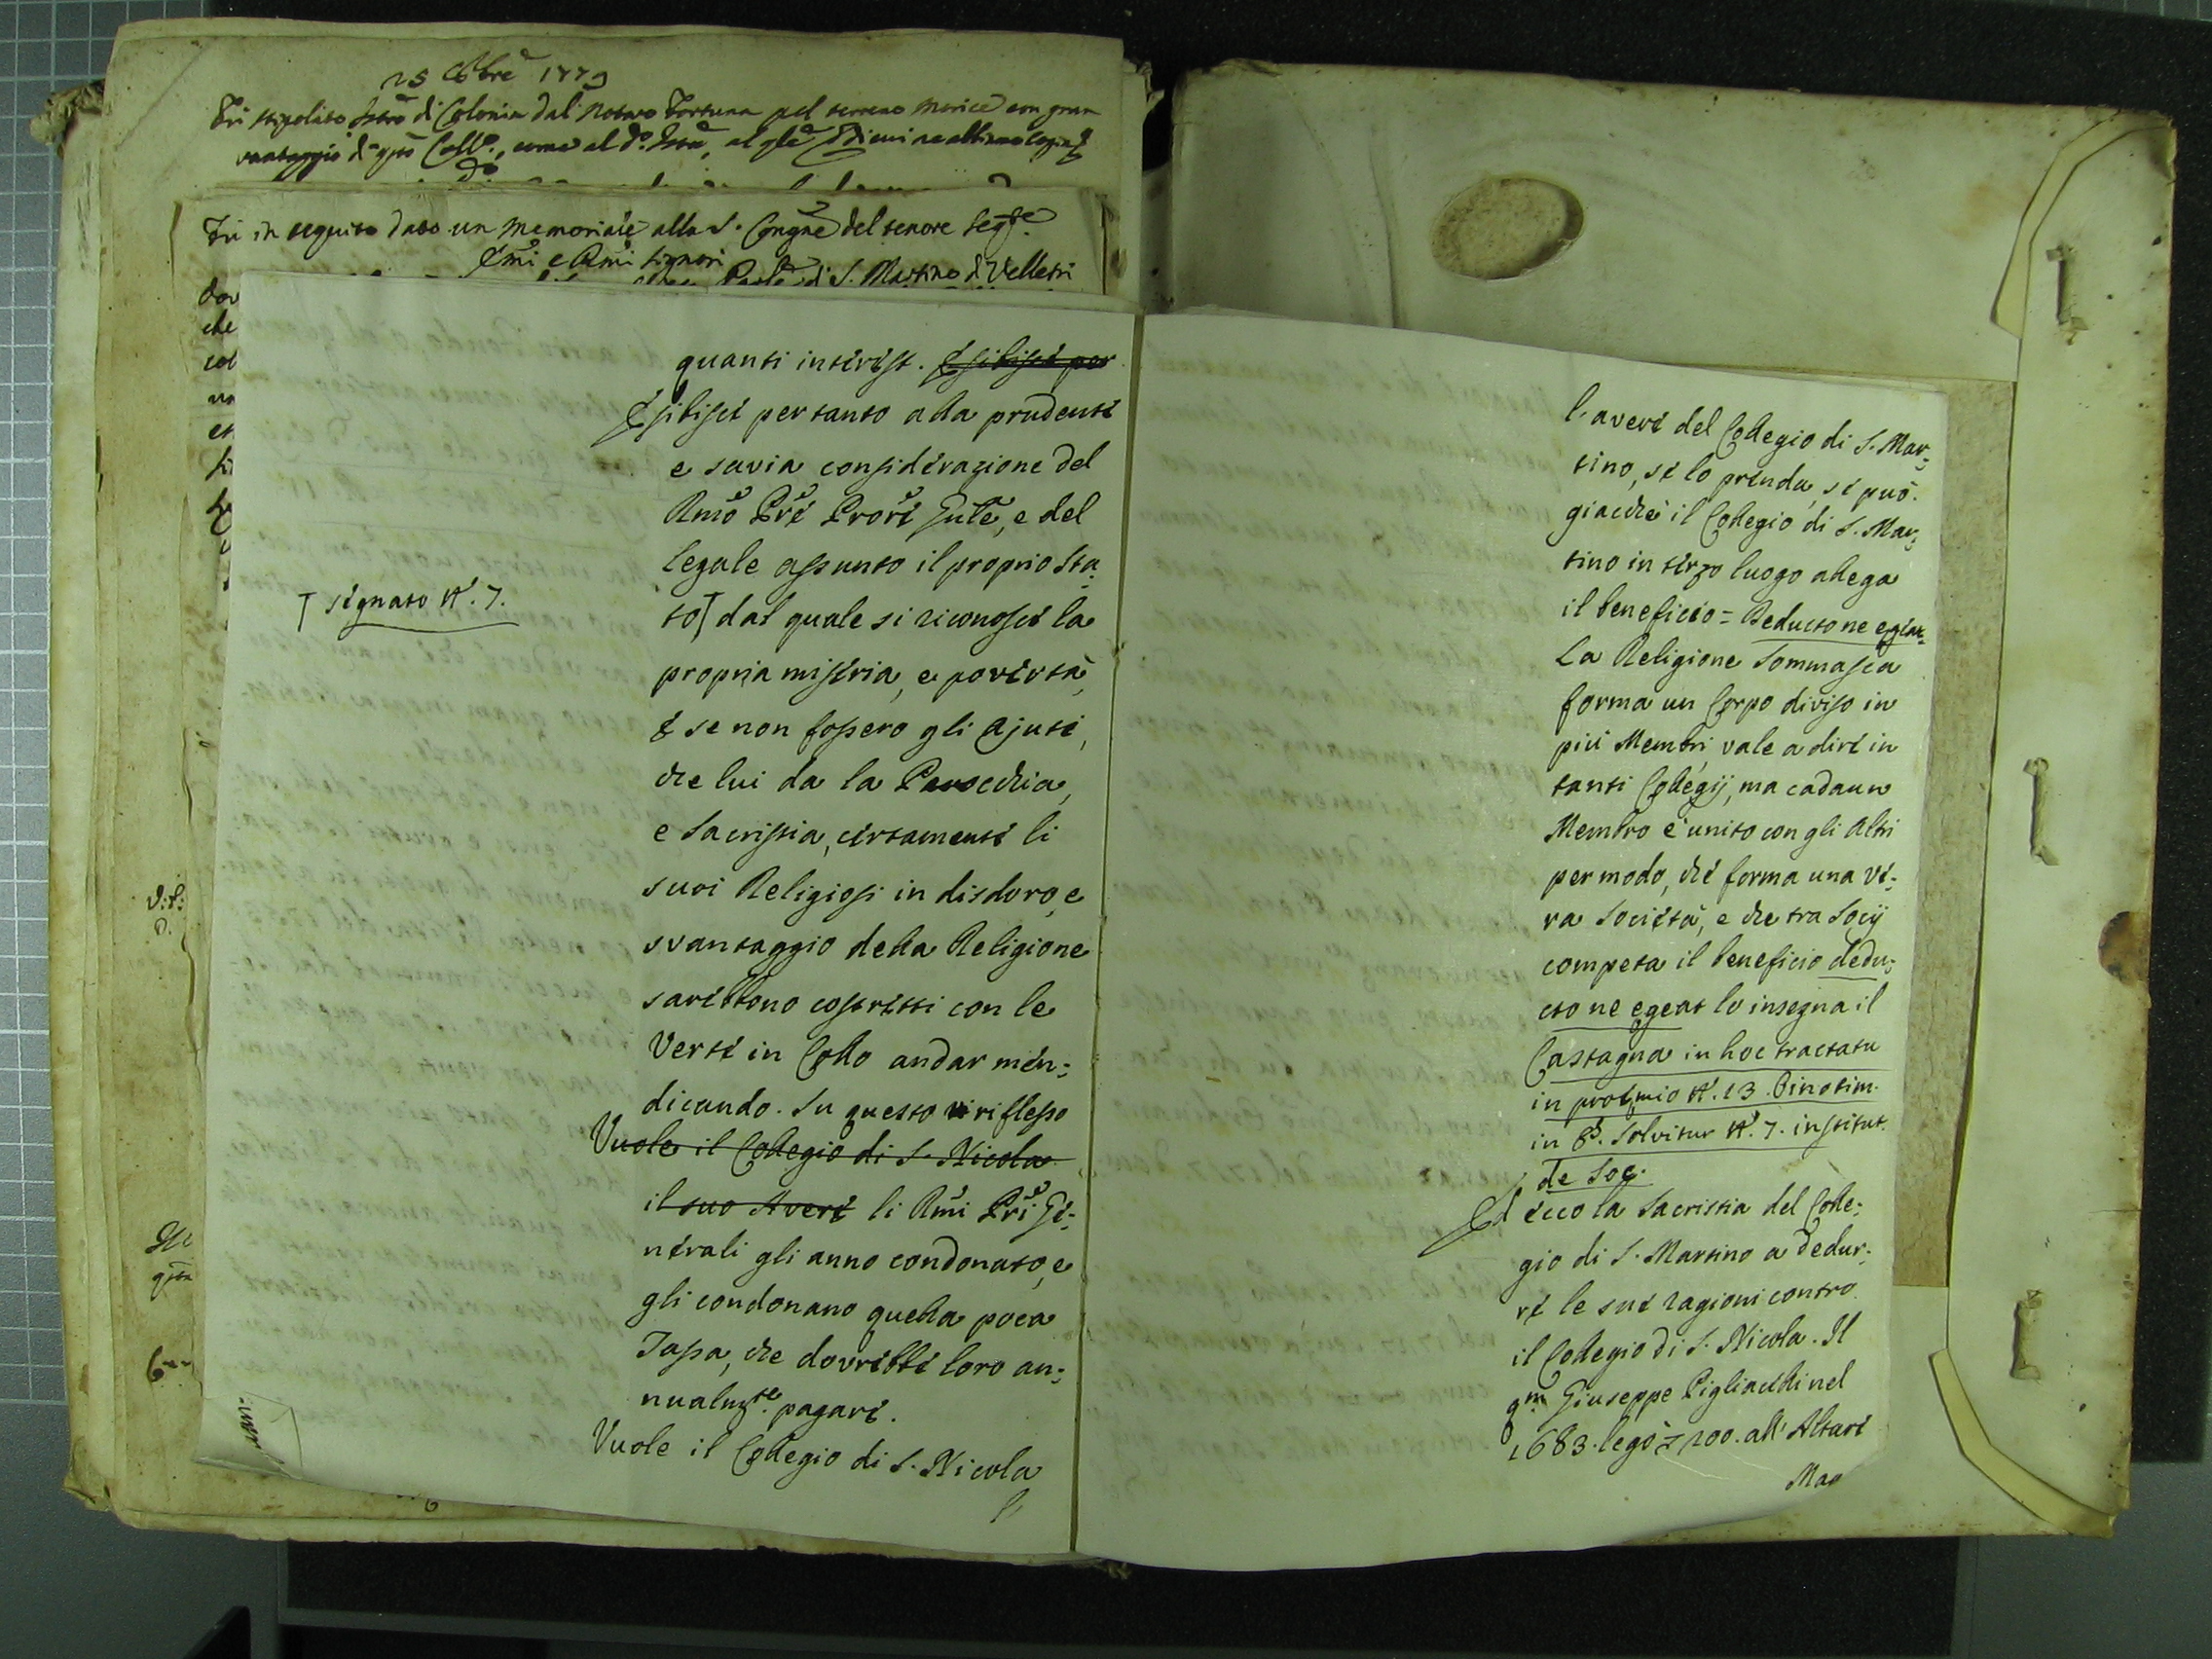 25 8bre 1779
Fu stipolato Istro di Colonia dal Notaro Fortuna pel terreno Morice con gran
vantaggio di qto Collo., come al do. Istro, al qle
Fu in seguito dato un Memoriale alla S. Congne del tenore segte.
Emi e Rmi Signori
di S. Martino di Velletri
quanti interest. Esibisce per
Esibisce per tanto alla prudente
e savia considerazione del
Rmo Pre Prore Gnle, e del
legale assunto il proprio Sta:
to⊤ dal quale si riconosce la
⊤ segnato N. 7.
propria miseria, e povertà,
e se non fossero gli Ajuti,
che lui da la Parocchia,
e Sacristia, certamente li
suoi Religiosi in disdoro, e
svantaggio della Religione
sarebbono costretti con le
Verte in Collo andar men:
dicando. Su questo riflesso
Vuole il Collegio di S. Nicola
il suo Avere li Rmi Pri Ge:
nerali gli anno condonato, e
gli condonano quella poca
Tassa, che dovrebbe loro an:
nualmte. pagare.
Vuole il Collegio di S. Nicola
l'
l'avere del Collegio di S. Mar:
tino, se lo prenda, se può.
giacchè il Collegio di S. Mar:
tino in terzo luogo allega
il beneficio = Deducto ne egeat.
La Religione Sommasca
forma un Corpo diviso in
più Membri, vale a dire in
tanti Collegij, ma cadaun
Membro è unito con gli Altri
per modo, che forma una ve:
ra Società, e che tra Socij
competa il beneficio dedu:
cto ne egeat lo insegna il
Castagna in hoc tractatu
in proemio N. 13. Pinotim.
in §. Solvitur N. 7. institut.
de Soc.
Ed ecco la Sacristia del Colle:
gio di S. Martino a dedur:
re le sue ragioni contro
il Collegio di S. Nicola. Il
qm Giuseppe Pigliacchi nel
1683. legò 200. all'Altare
Mag